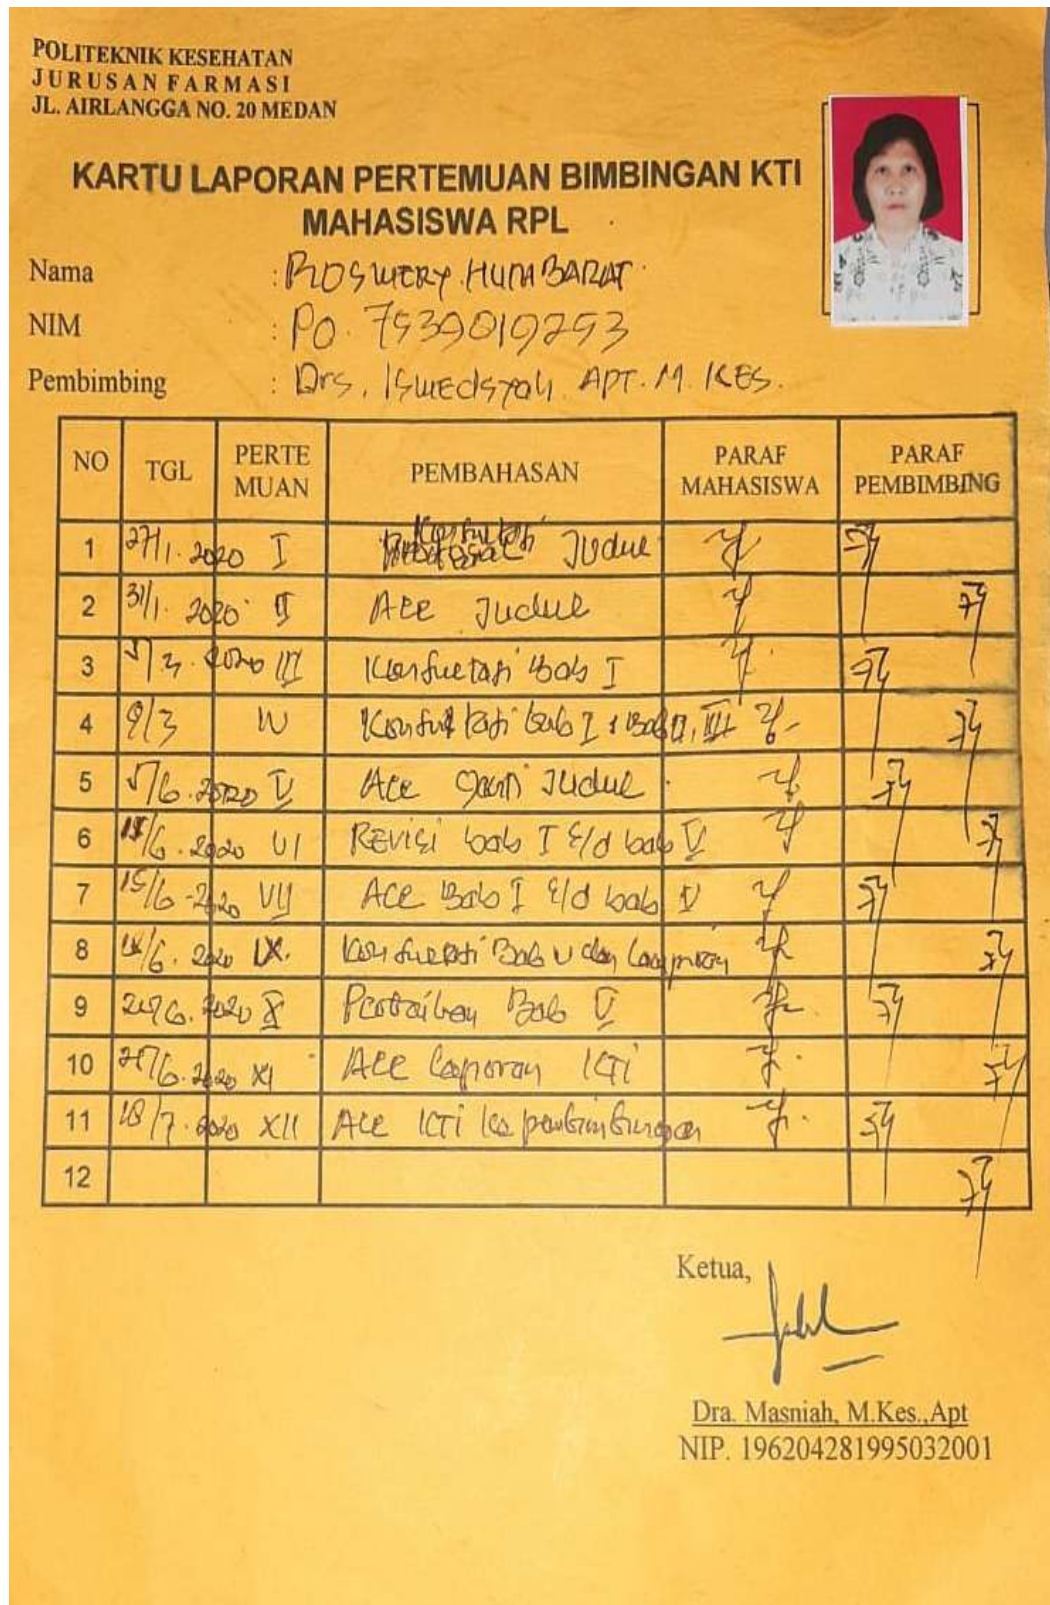 POLITEKNIK KESEHATAN
JURUSAN FARMASI
JL. AIRLANGGA NO. 20 MEDAN
KARTU LAPORAN PERTEMUAN BIMBINGAN KTI
MAHASISWA RPL
Nama : ROSWERY HUTABARAT
NIM : PO. 7539019293
Pembimbing : Drs. Ismedsyah APT. M. KES.
NO TGL PERTE MUAN PEMBAHASAN PARAF MAHASISWA PARAF PEMBIMBING
1 27/1. 2020 I Konsultasi Judul
2 31/1. 2020 II Acc Judul
3 5/3. 2020 III Konsultasi Bab I
4 9/3 IV Konsultasi bab I, Bab II, III
5 5/6. 2020 V Acc Ganti Judul
6 /6. 2020 VI REVISI bab I S/d bab V
7 15/6 - 2020 VII Acc Bab I S/d bab V
8 /6. 2020 IX. Konsultasi Bab V dan Lampiran
9 /6. 2020 X Perbaikan Bab V
10 /6. 2020 XI Acc Laporan KTI
11 18/7. 2020 XII Acc KTI ke
12
Ketua,
Dra. Masniah, M.Kes.,Apt
NIP. 196204281995032001